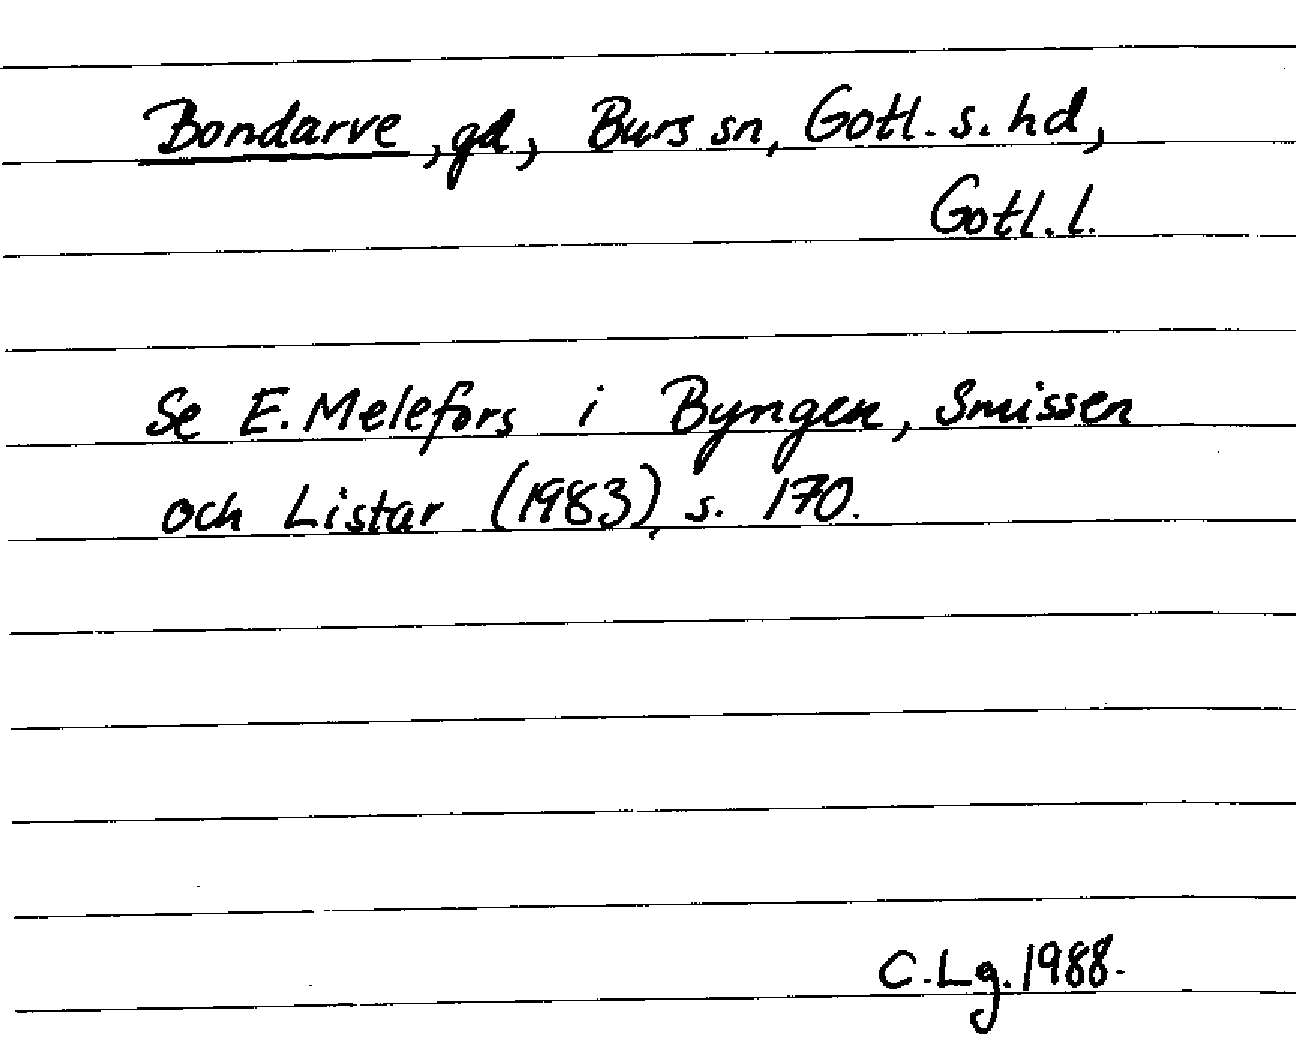 Bondarve, gd, Burs sn, Gotl. s. hd,
Gotl. l.
Se E. Melefors i Byngen, Smissen
och Listar (1983), s. 170.
C. Lg. 1988.